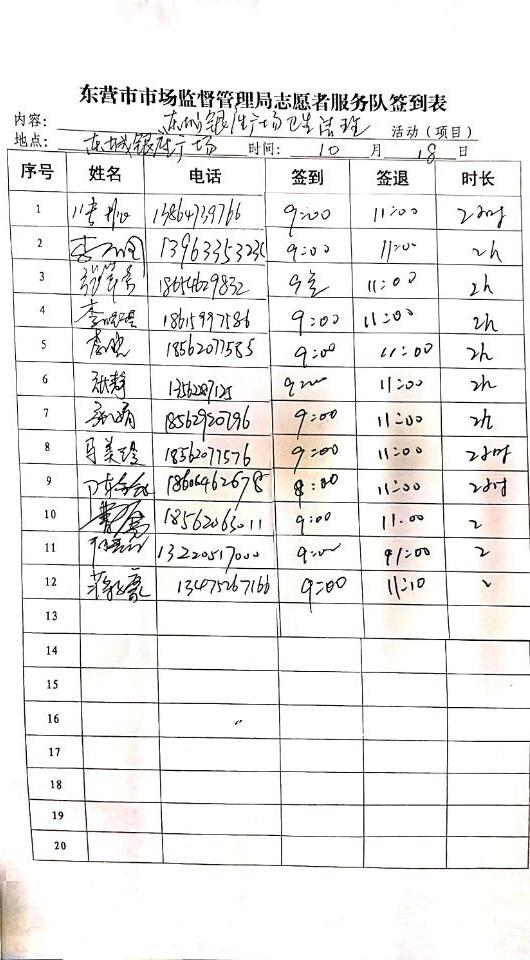 东营市市场监督管理局志愿者服务队签到表
内容： 东城银座广场卫生清理 活动（项目）
地点： 东城银座广场 时间： 10 月 18 日
序号 姓名 电话 签到 签退 时长
1 13864739766 9:00 11:00 2小时
2 9:00 11:00 2h
3 18654629832 11:00 2h
4 18615997586 9:00 11:00 2h
5 李晓 18562077585 9:00 11:00 2h
6 张静 11:00 2h
7 18562920796 9:00 11:00 2h
8 马美玲 18562077576 9:00 11:00 2小时
9 18606462678 8:00 11:00 2小时
10 18562063011 9:00 11.00 2
11 13220517000 9:00 11:00 2
12 13475267166 9:00 11:10 2
13
14
15
16
17
18
19
20